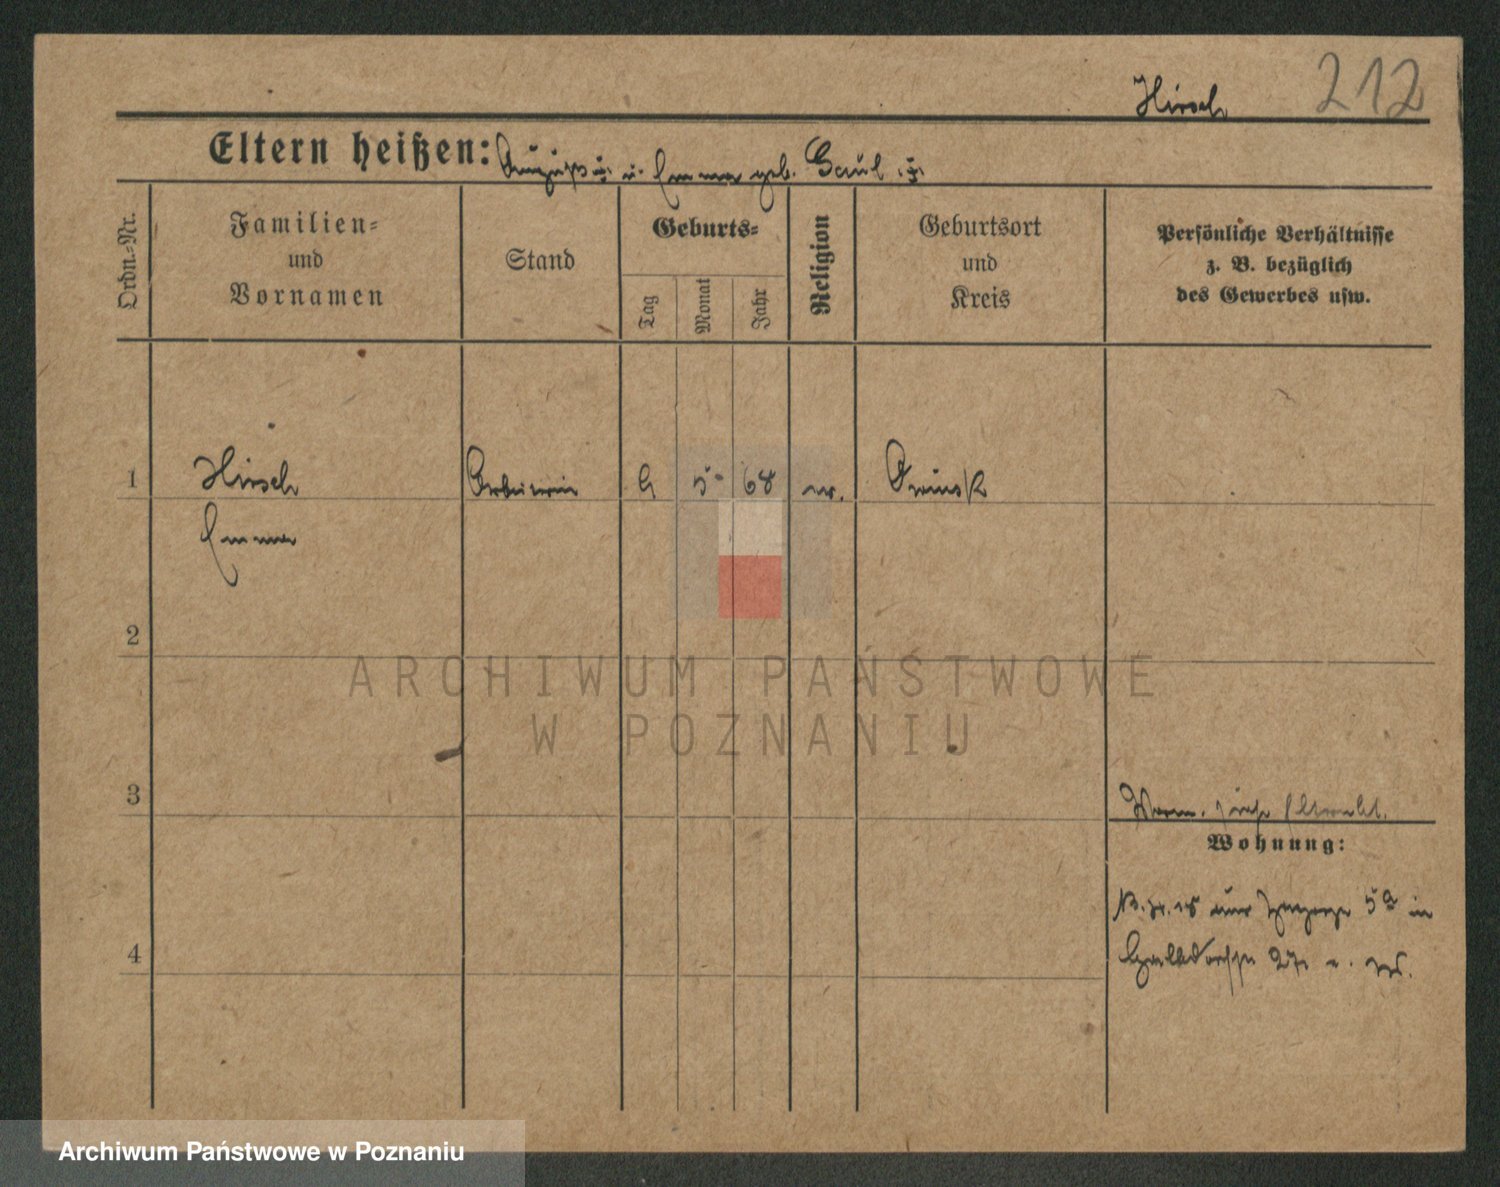 212
Hirsch
Eltern heißen: August u. Emma geb. Gaul
Ordn.-Nr.
Familien-
und
Vornamen
Stand
Geburts-
Tag
Monat
Jahr
Religion
Geburtsort
und
Kreis
Persönliche Verhältnisse
z. B. bezüglich
des Gewerbes usw.
1
Hirsch
Arbeiterin
9
5
68
ev.
Emma
2
3
4
Wohnung:
5a in
ARCHIWUM PAŃSTWOWE
W POZNANIU
Archiwum Państwowe w Poznaniu